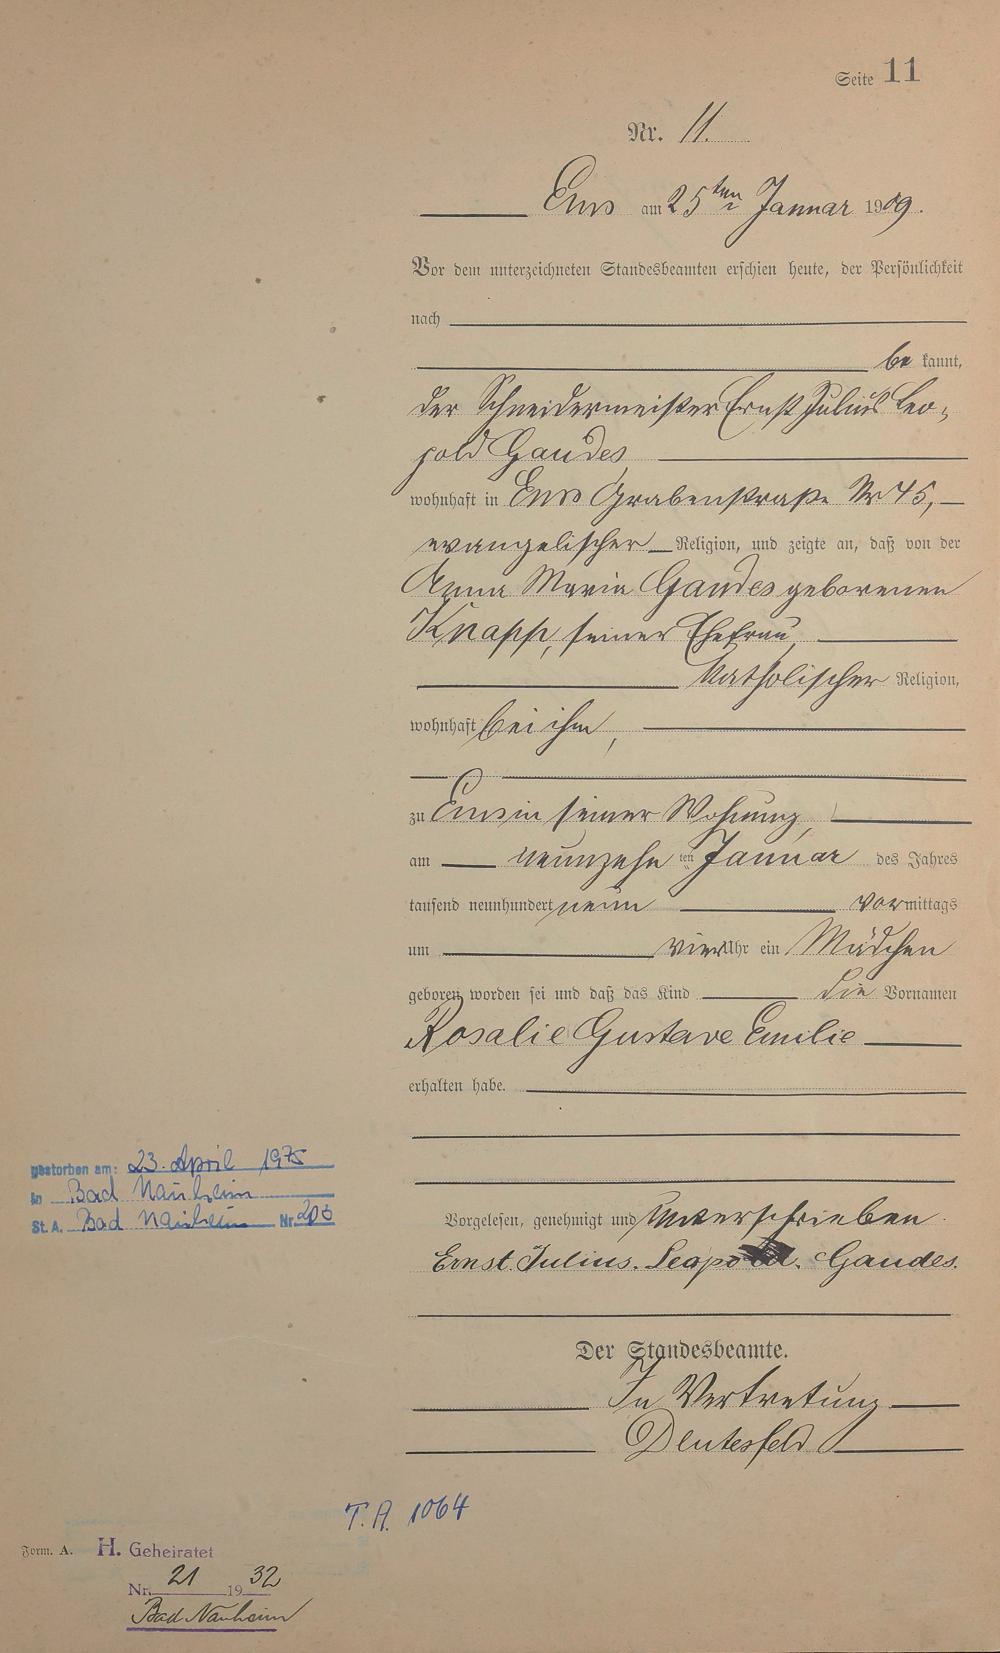 Seite 11
Nr. 11.
Ems am 25ten Januar 1909.
Vor dem unterzeichneten Standesbeamten erschien heute, der Persönlichkeit
nach
be kannt,
der Schneidermeister Ernst Julius Leo-
pold Gandes
wohnhaft in Ems Grabenstraße Nr 45,
evangelischer Religion, und zeigte an, daß von der
Anna Maria Gandes geborenen
Knapp, seiner Ehefrau,
katholischer Religion,
wohnhaft bei ihm,
zu Ems in seiner Wohnung,
am neunzehnten Januar des Jahres
tausend neunhundert neun vormittags
um vier Uhr ein Mädchen
geboren worden sei und daß das Kind die Vornamen
Rosalie Gustave Emilie
erhalten habe.
gestorben am: 23. April 1975
in Bad Nauheim
St. A. Bad Nauheim Nr.
Vorgelesen, genehmigt und unterschrieben.
Ernst. Julius. Leopold. Gandes.
Der Standesbeamte.
In Vertretung
T. A. 1064
Form. A. H. Geheiratet
Nr. 21 1932
Bad Nauheim